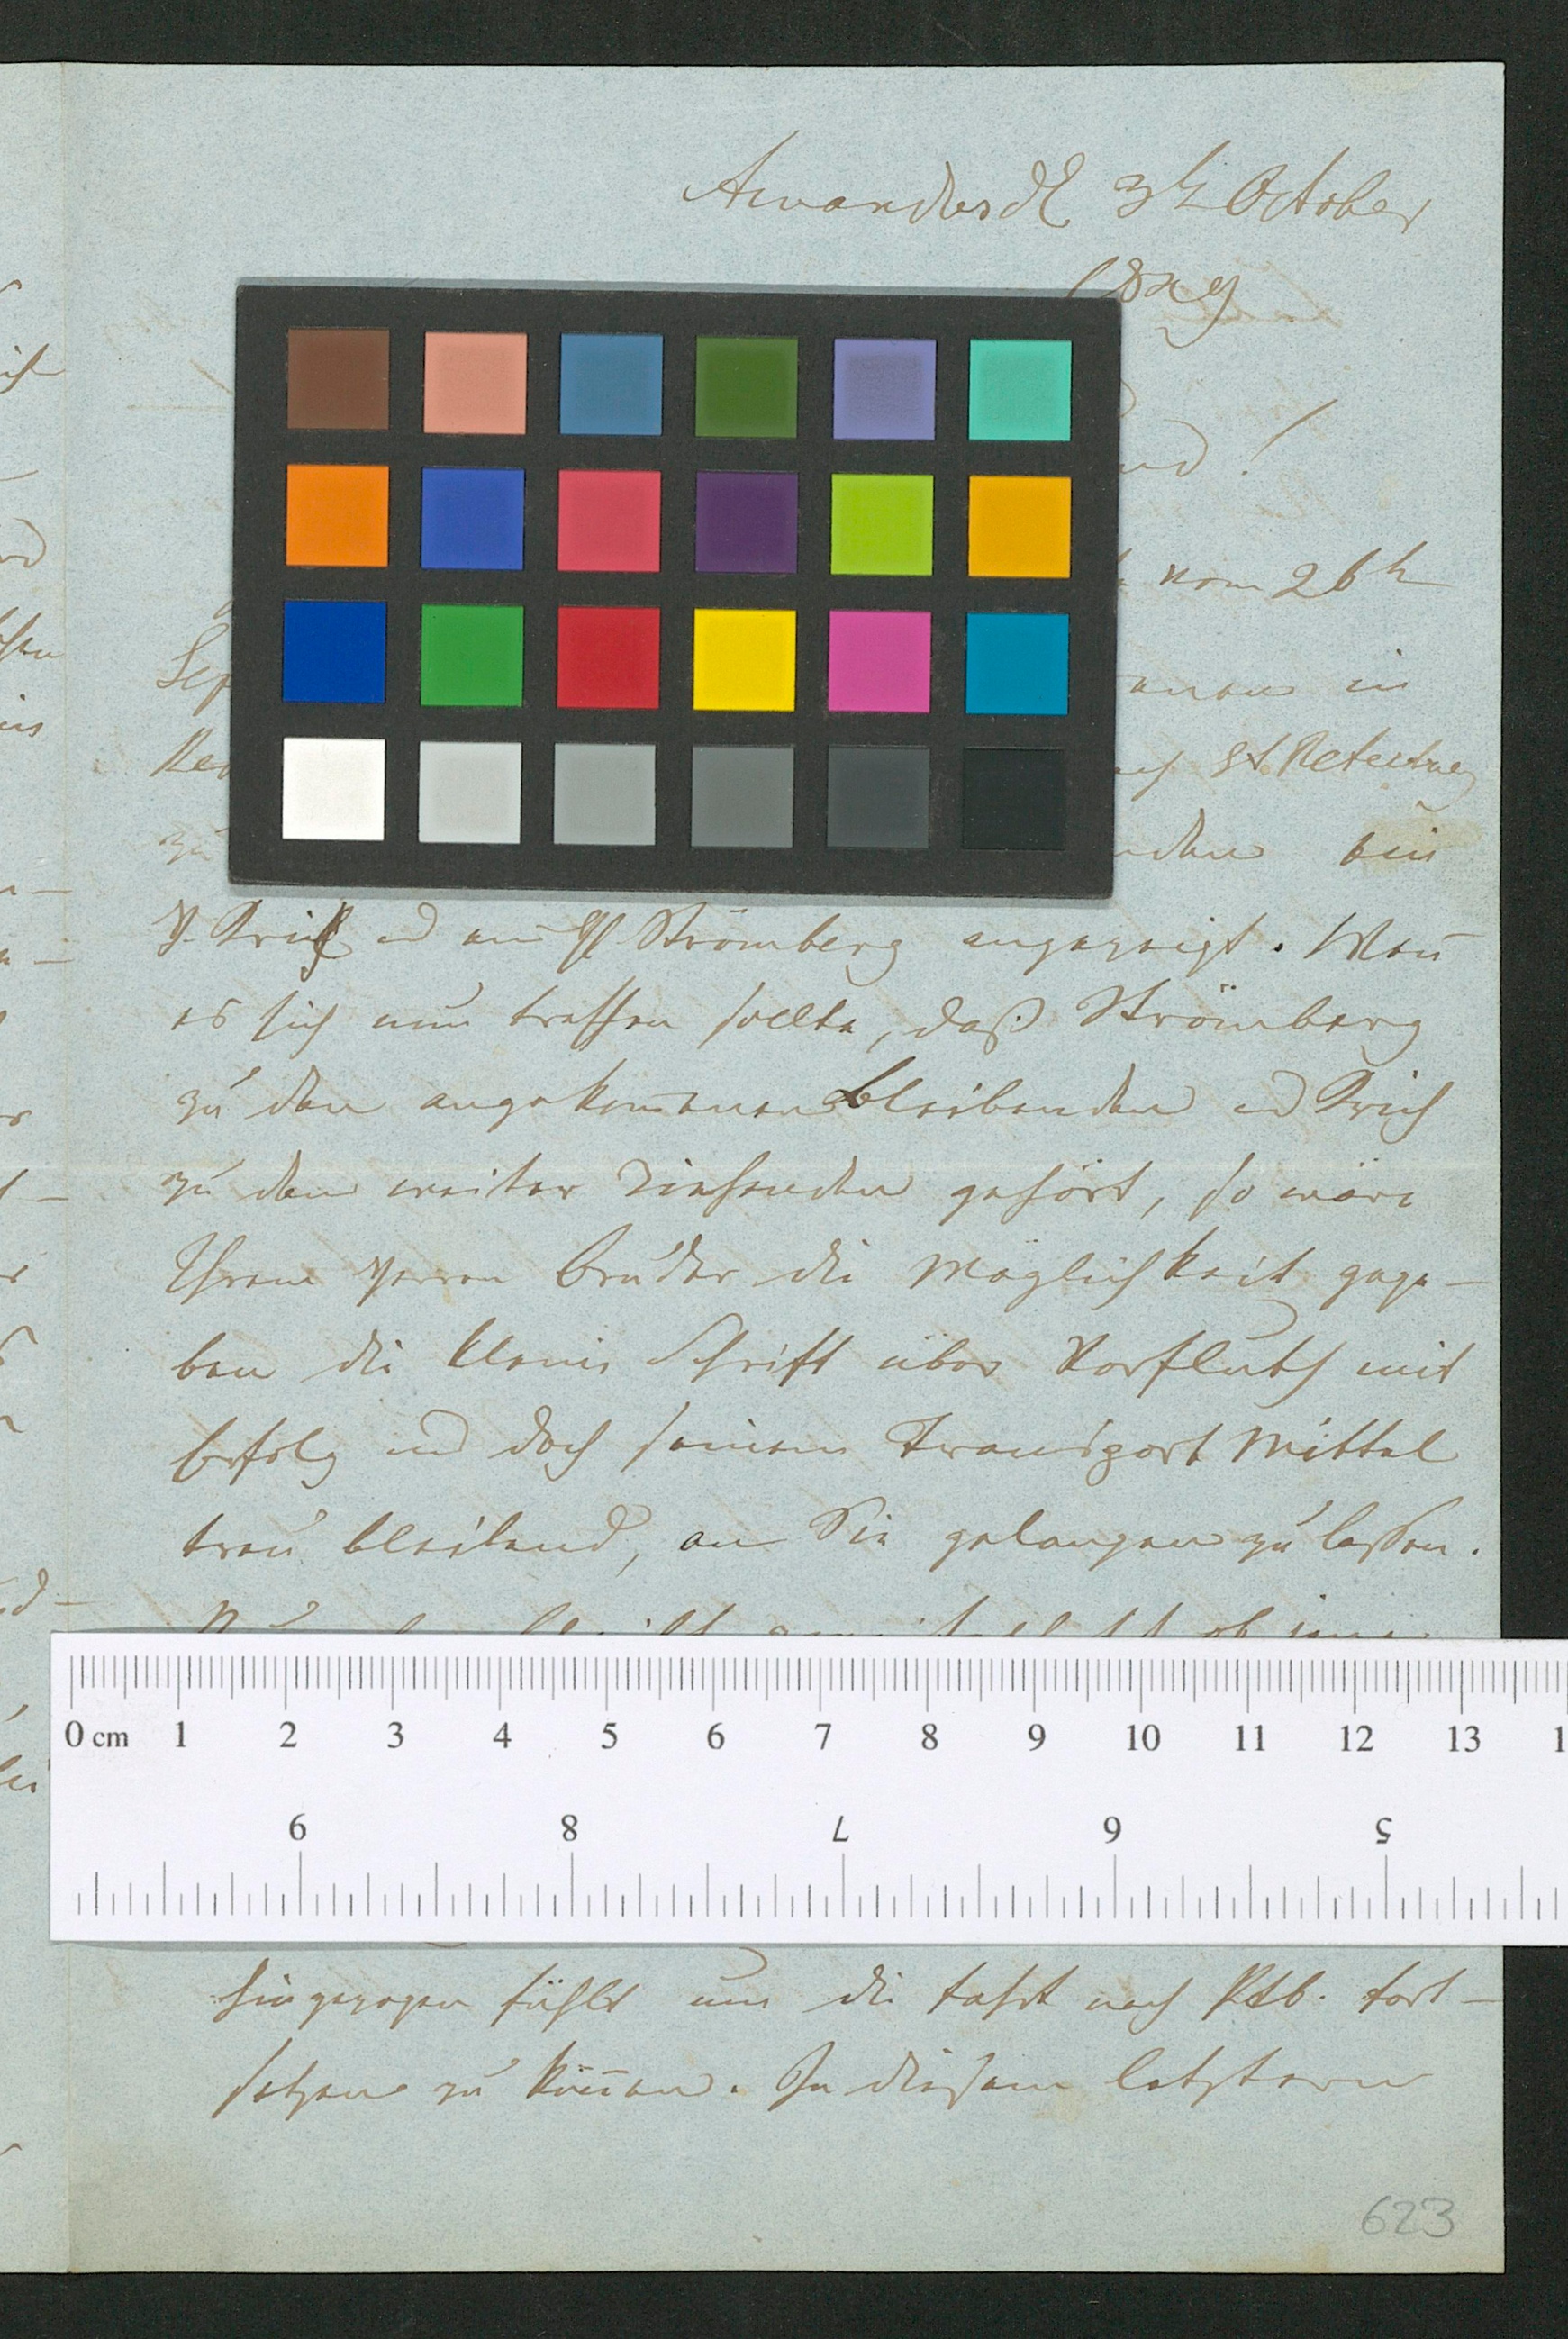 3t October
vom 26t
Sep
in
St Petersburg
zu
bei
H. und am H. Strömberg angezeigt. Wen̄
es sich nun treffen sollte, daß Strömberg
zu den angekom̄enen bleibenden und
zu den weiter ziehenden gehört, so wäre
Ihrem Herren Bruder die Möglichkeit gege-
ben die kleine Schrift über Vorfluth mit
Erfolg und doch seinem Transport Mittel
treu bleibend, an Sie gelangen zu lassen.
0 cm 1 2 3 4 5 6 7 8 9 10 11 12 13
9 8 7 6 5
hingezogen fühlt um die Fahrt nach Ptb. fort-
setzen zu kön̄en. In diesem letztern
623